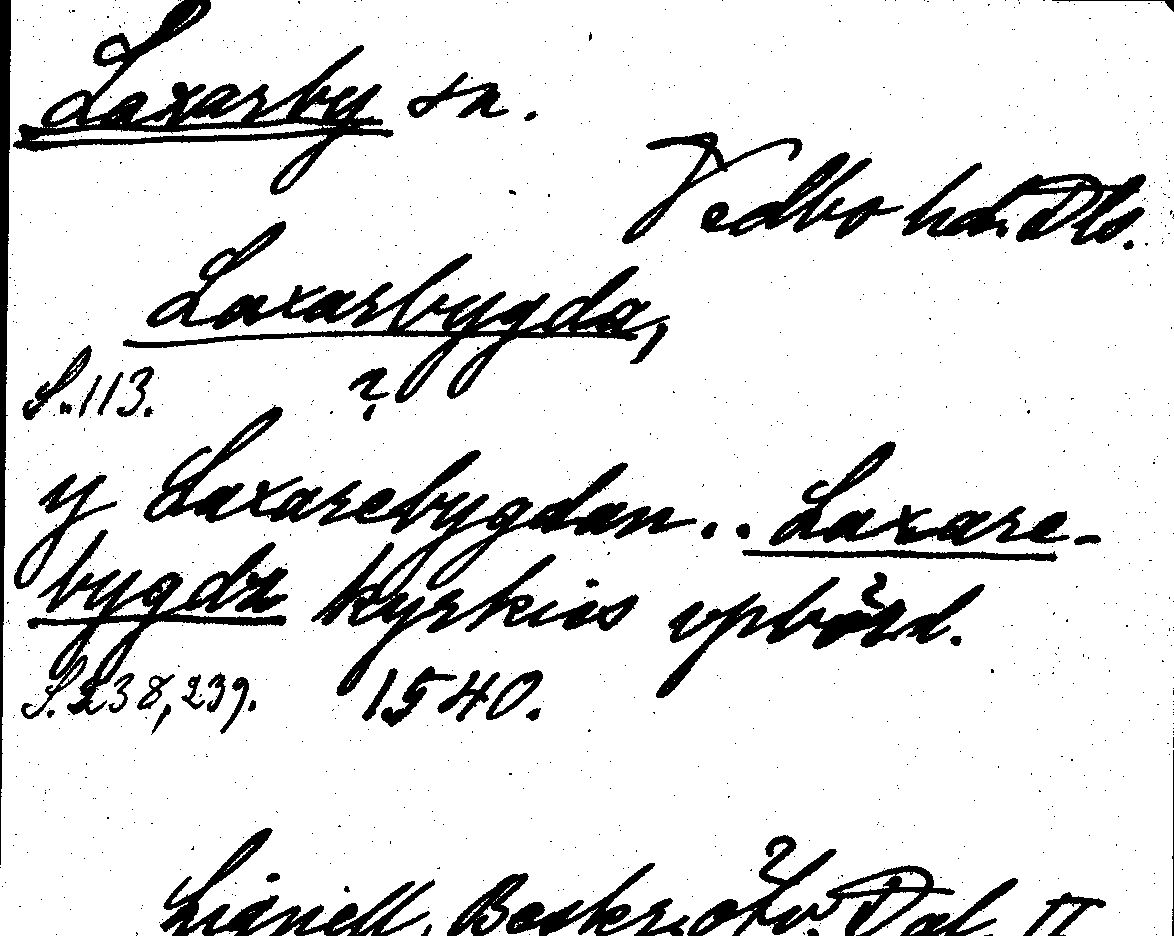 Laxarby sn.
Vedbo härads.
Laxarbygda,
S. 113. ?
y Laxarebygdan .. Laxare-
bygdz kyrkios vpbörd.
S. 238, 239. 1540.
Lignell, Beskr. öfv. Dal II